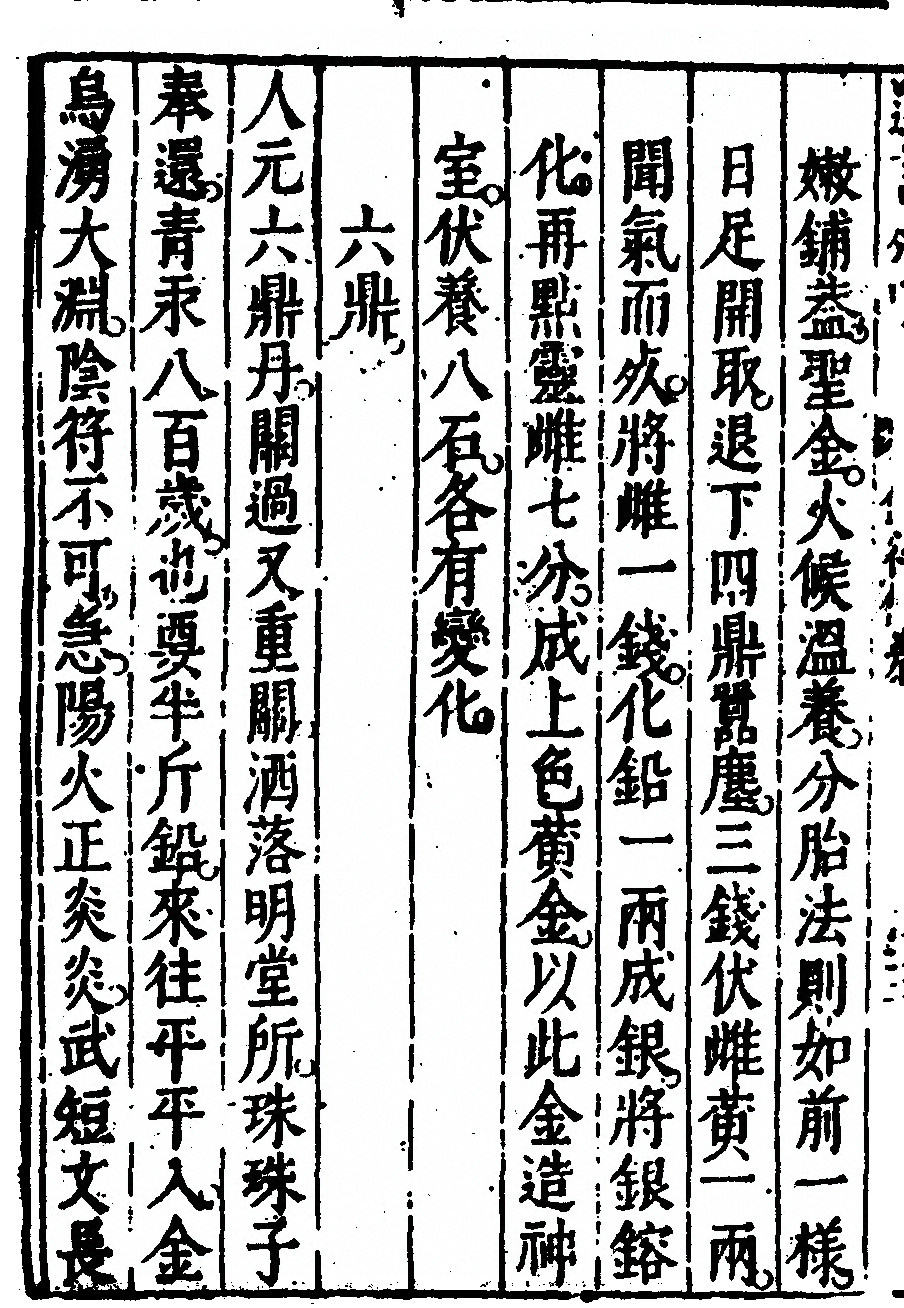 嫩鋪葢聖金火候溫養分胎法則如前一樣
日足開取退下四鼎囂塵三錢伏雌黃一兩
聞氣而死將雌一錢化鉛一兩成銀將銀鎔
化再點靈雌七分成上色黃金以此金造神
室伏養八石各有變化
六鼎
人元六鼎丹關過又重關洒落明堂所珠珠子
奉還青汞八百歲也要半斤鉛來往平平入金
烏湧大淵陰符不可急陽火正炎炎武短文長